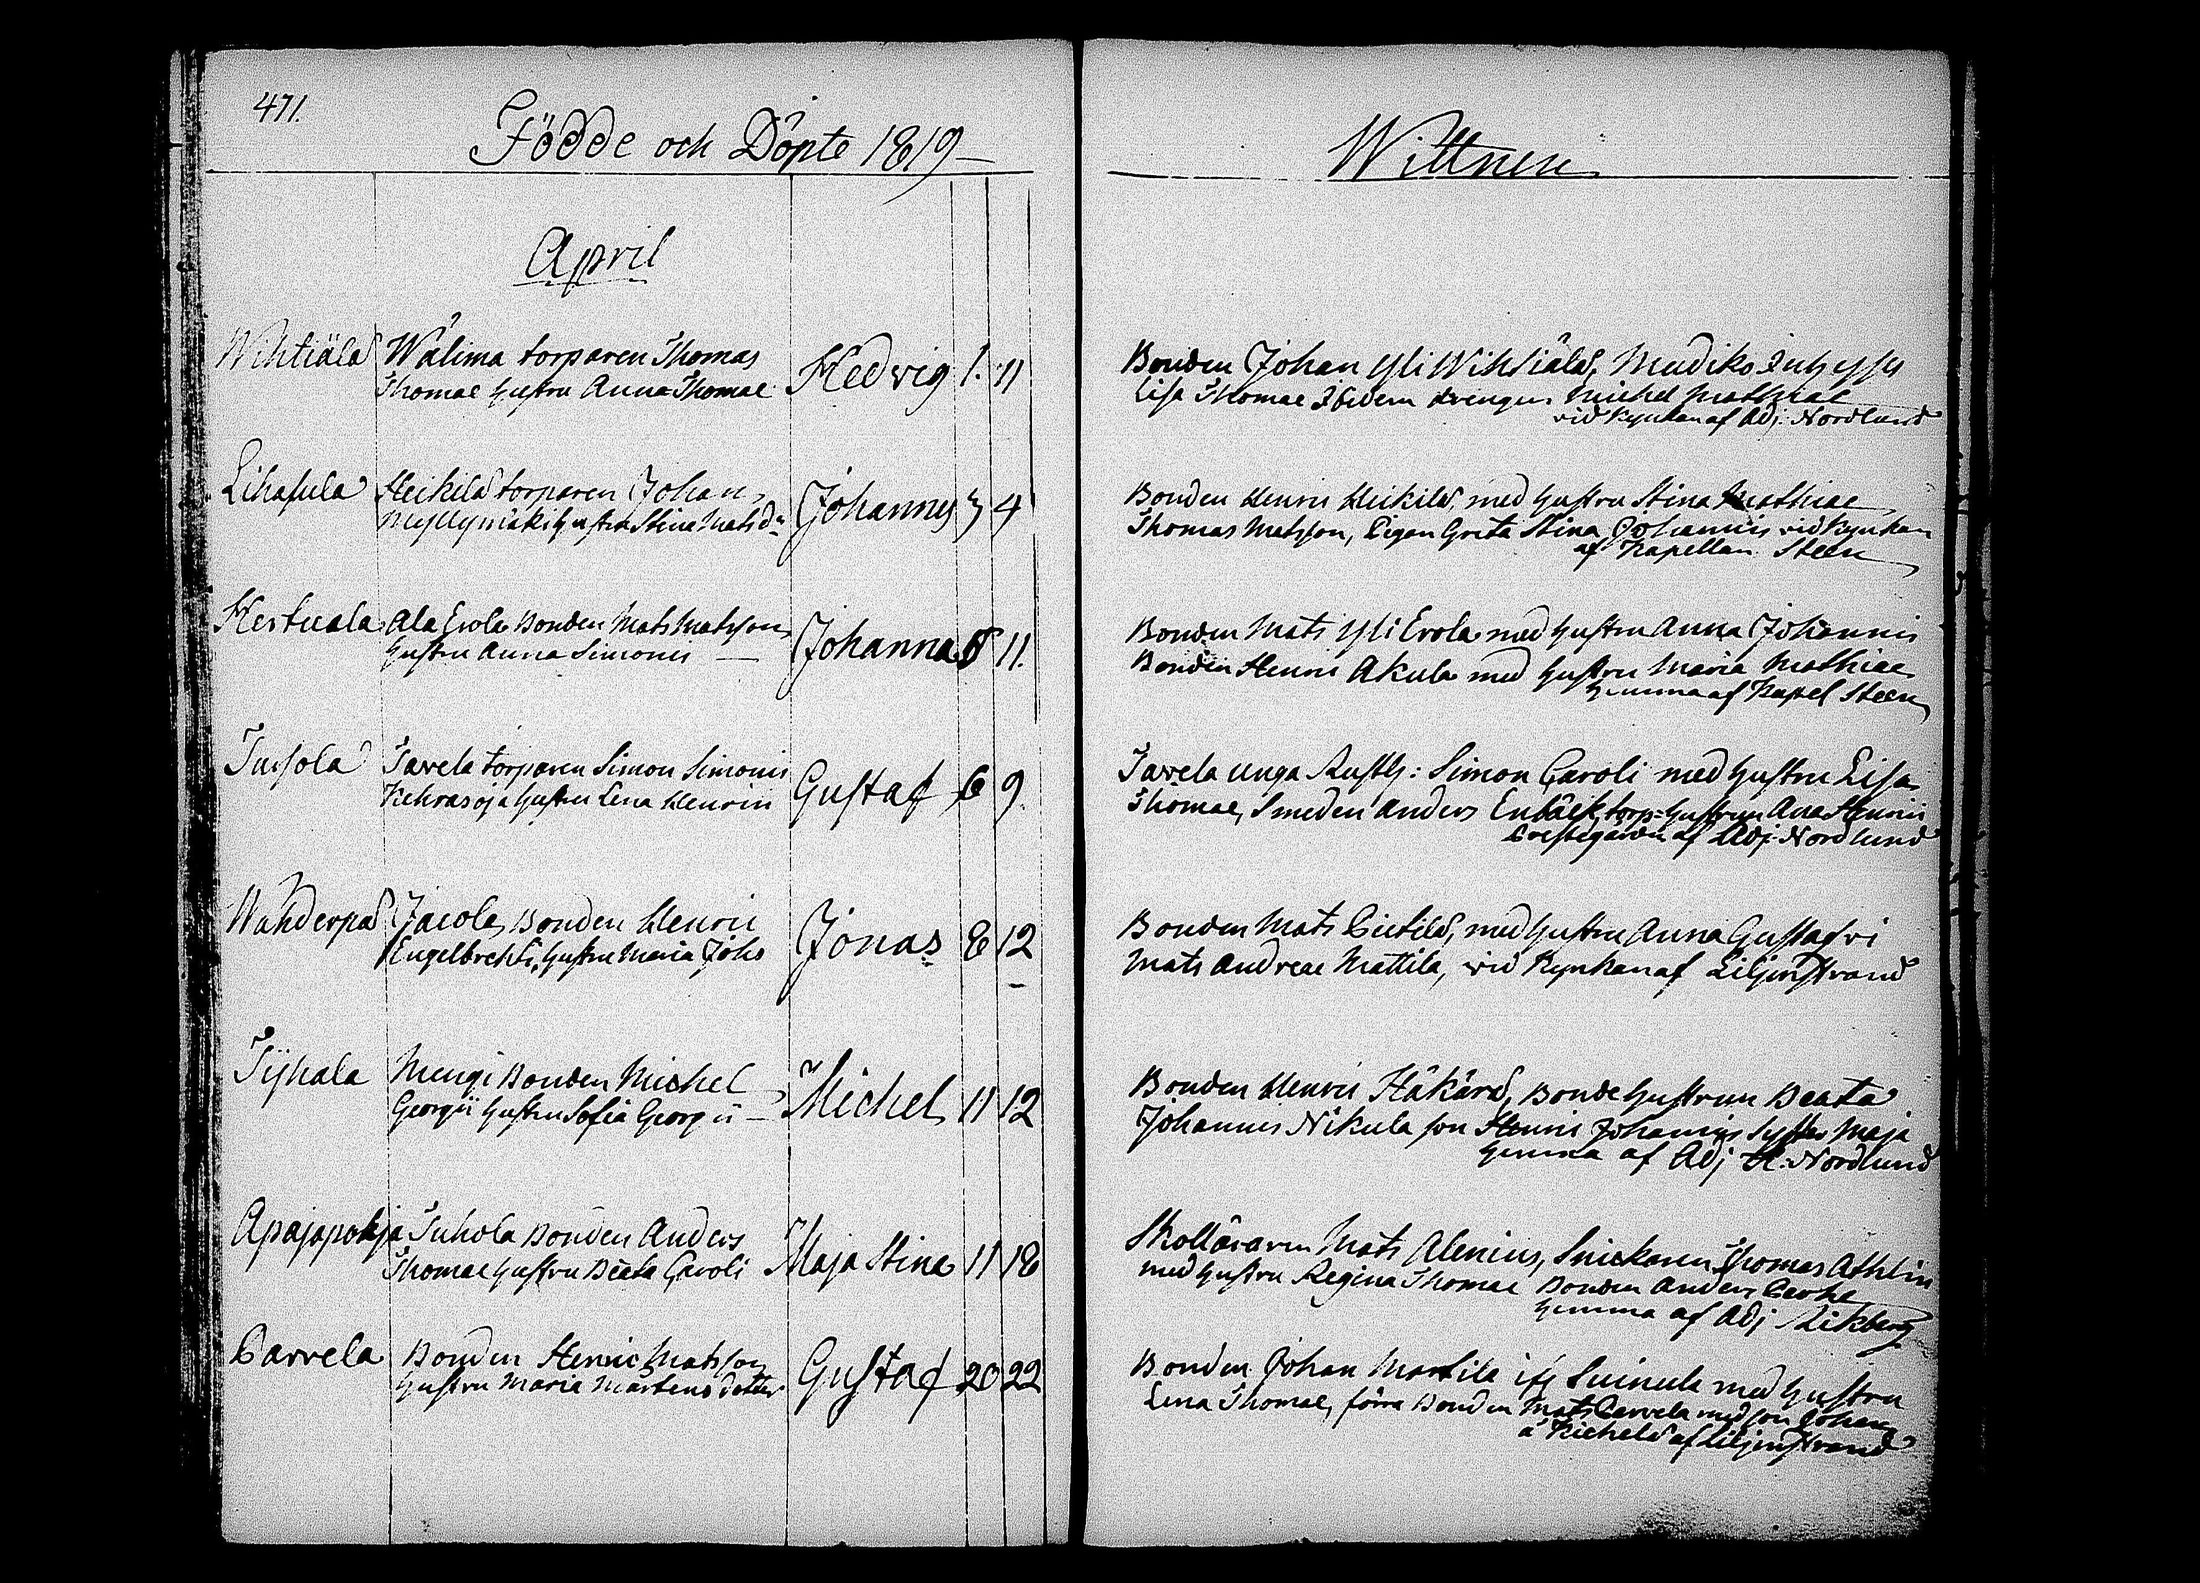 471.
Födde och Döpte 1819
April
Wihtiälä Wälima torparen Thomas Hedvig 1. 11
Thomae hustru Anna Thomae
Lihasula Heikilä torparen Johan Johannes 3 4
Myllymäki hustru Stina Matsdr
Hertuala Ala Erola Bonden Mats Matsson Johanna 5 11.
hustru Anna Simonis
Jussola Tavela torparen Simon Simonis Gustaf 6 9
Kehrasoja hustru Lena Henrici
Wähderpä Jacola Bonden Henric Jonas 8 12
Engelbrehti, hustru Maria Johs
Tijhala Mengi Bonden Michel Michel 11 12
Georgii hustru Sofia Georgii
Apajapohja Juhola Bonden Anders Maja Stina 11 18
Thomae hustru Beata Caroli
Parvela Bonden Henric Matsson Gustaf 20 22
hustru Maria Mårtens dotter
Wittnen
Bonden Johan Yli Wihtiälä,
Lisa Thomae Ibidem drengen Michel Matthiae
vid Kyrkan af Adj: Nordlund
Bonden Henric Heikilä, med hustru Stina Mathiae
Thomas Matsson, Pigan Greta Stina Johannis vid Kyrkan
af Kapellan Steen
Bonden Mats Yli Erola med hustru Anna Johannis
Bonden Henric Akula med hustru Maria Mathiae
hemma af Kapel Steen
Tavela unga Rusth: Simon Caroli med hustru Lisa
Thomae, Smeden Anders Enbäck, torp: hustrun Ana Henrici
Prestegården af Adj: Nordlund
Bonden Mats Pietilä, med hustru Anna Gustafvi
Mats Andreae Mattila, vid Kyrkan af Liljenstrand
Bonden Henric Häkärä, Bonde hustrun Beata
Johannes Nikula son Henric Johannis Syster Maja
hemma af Adj H: Nordlund
Skolläraren Mats Alenius, Snickaren Thomas Athlin
med hustru Regina Thomae Bonden Anders
hemma af Adj Rikberg
Bonden Johan Mattila ifr Suinula med hustru
Lena Thomae, förra Bonden Mats Parvela med son Johan
å Kiehelä af Liljenstrand